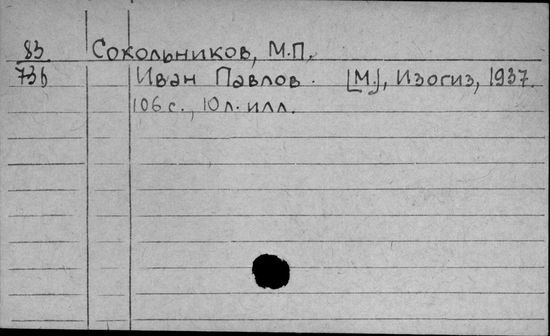 83 Сокольников, М.П.
73б Иван Павлов. [М.], Изогиз, 1937.
106 с., 10 л. илл.